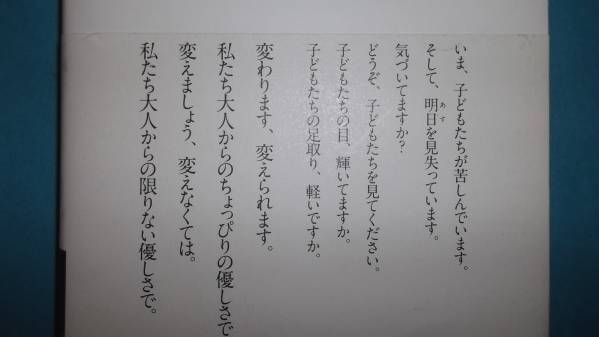 いま、子どもたちが苦しんでいます。
そして、明日を見失っています。
あす
気づいてますか?
どうぞ、子どもたちを見てください。
子どもたちの目、輝いてますか。
子どもたちの足取り、軽いですか。
変わります、変えられます。
私たち大人からのちょっぴりの優しさで
変えましょう、変えなくては。
私たち大人からの限りない優しさで。